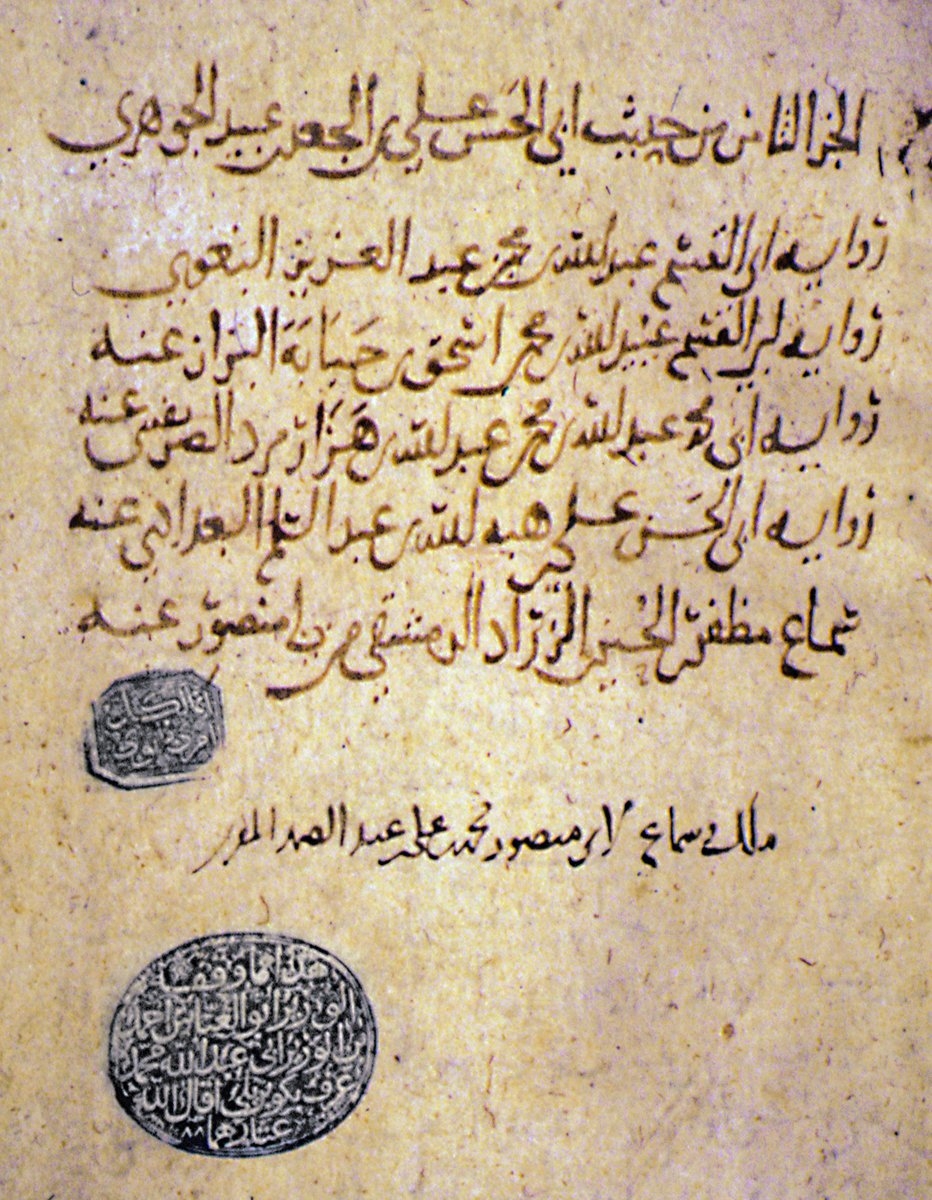 الجزء الثامن من حديث ابي الحسن علي بن الجعد بن عبيد الجوهري
رواية ابي القسم عبد الله بن محمد بن عبد العزيز البغوي
رواية ابي القسم عبيد الله بن محمد بن اسحق بن حبابة البزاز عنه
رواية ابي محمد عبد الله بن محمد بن عبد الله بن هزارمرد الصريفيني عنه
رواية ابي الحسن علي بن هبة الله بن عبد السلم البغداذي عنه
سماع مظفر بن الحسين الزراد الدمشقي من ابي منصور عنه
انما لكل
امرئ ما نوى
سماع لابي منصور محمد بن علي بن عبد الصمد
هذا مما وقف
الوزير ابو العباس احمد
بن الوزير ابي عبد الله محمد
عرف بكوبريلي اقال الله
عثارهما ٨٨